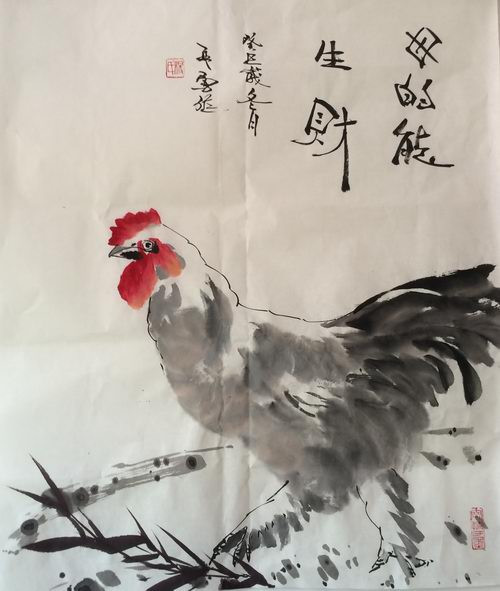 母的能
生財
癸巳歲冬月